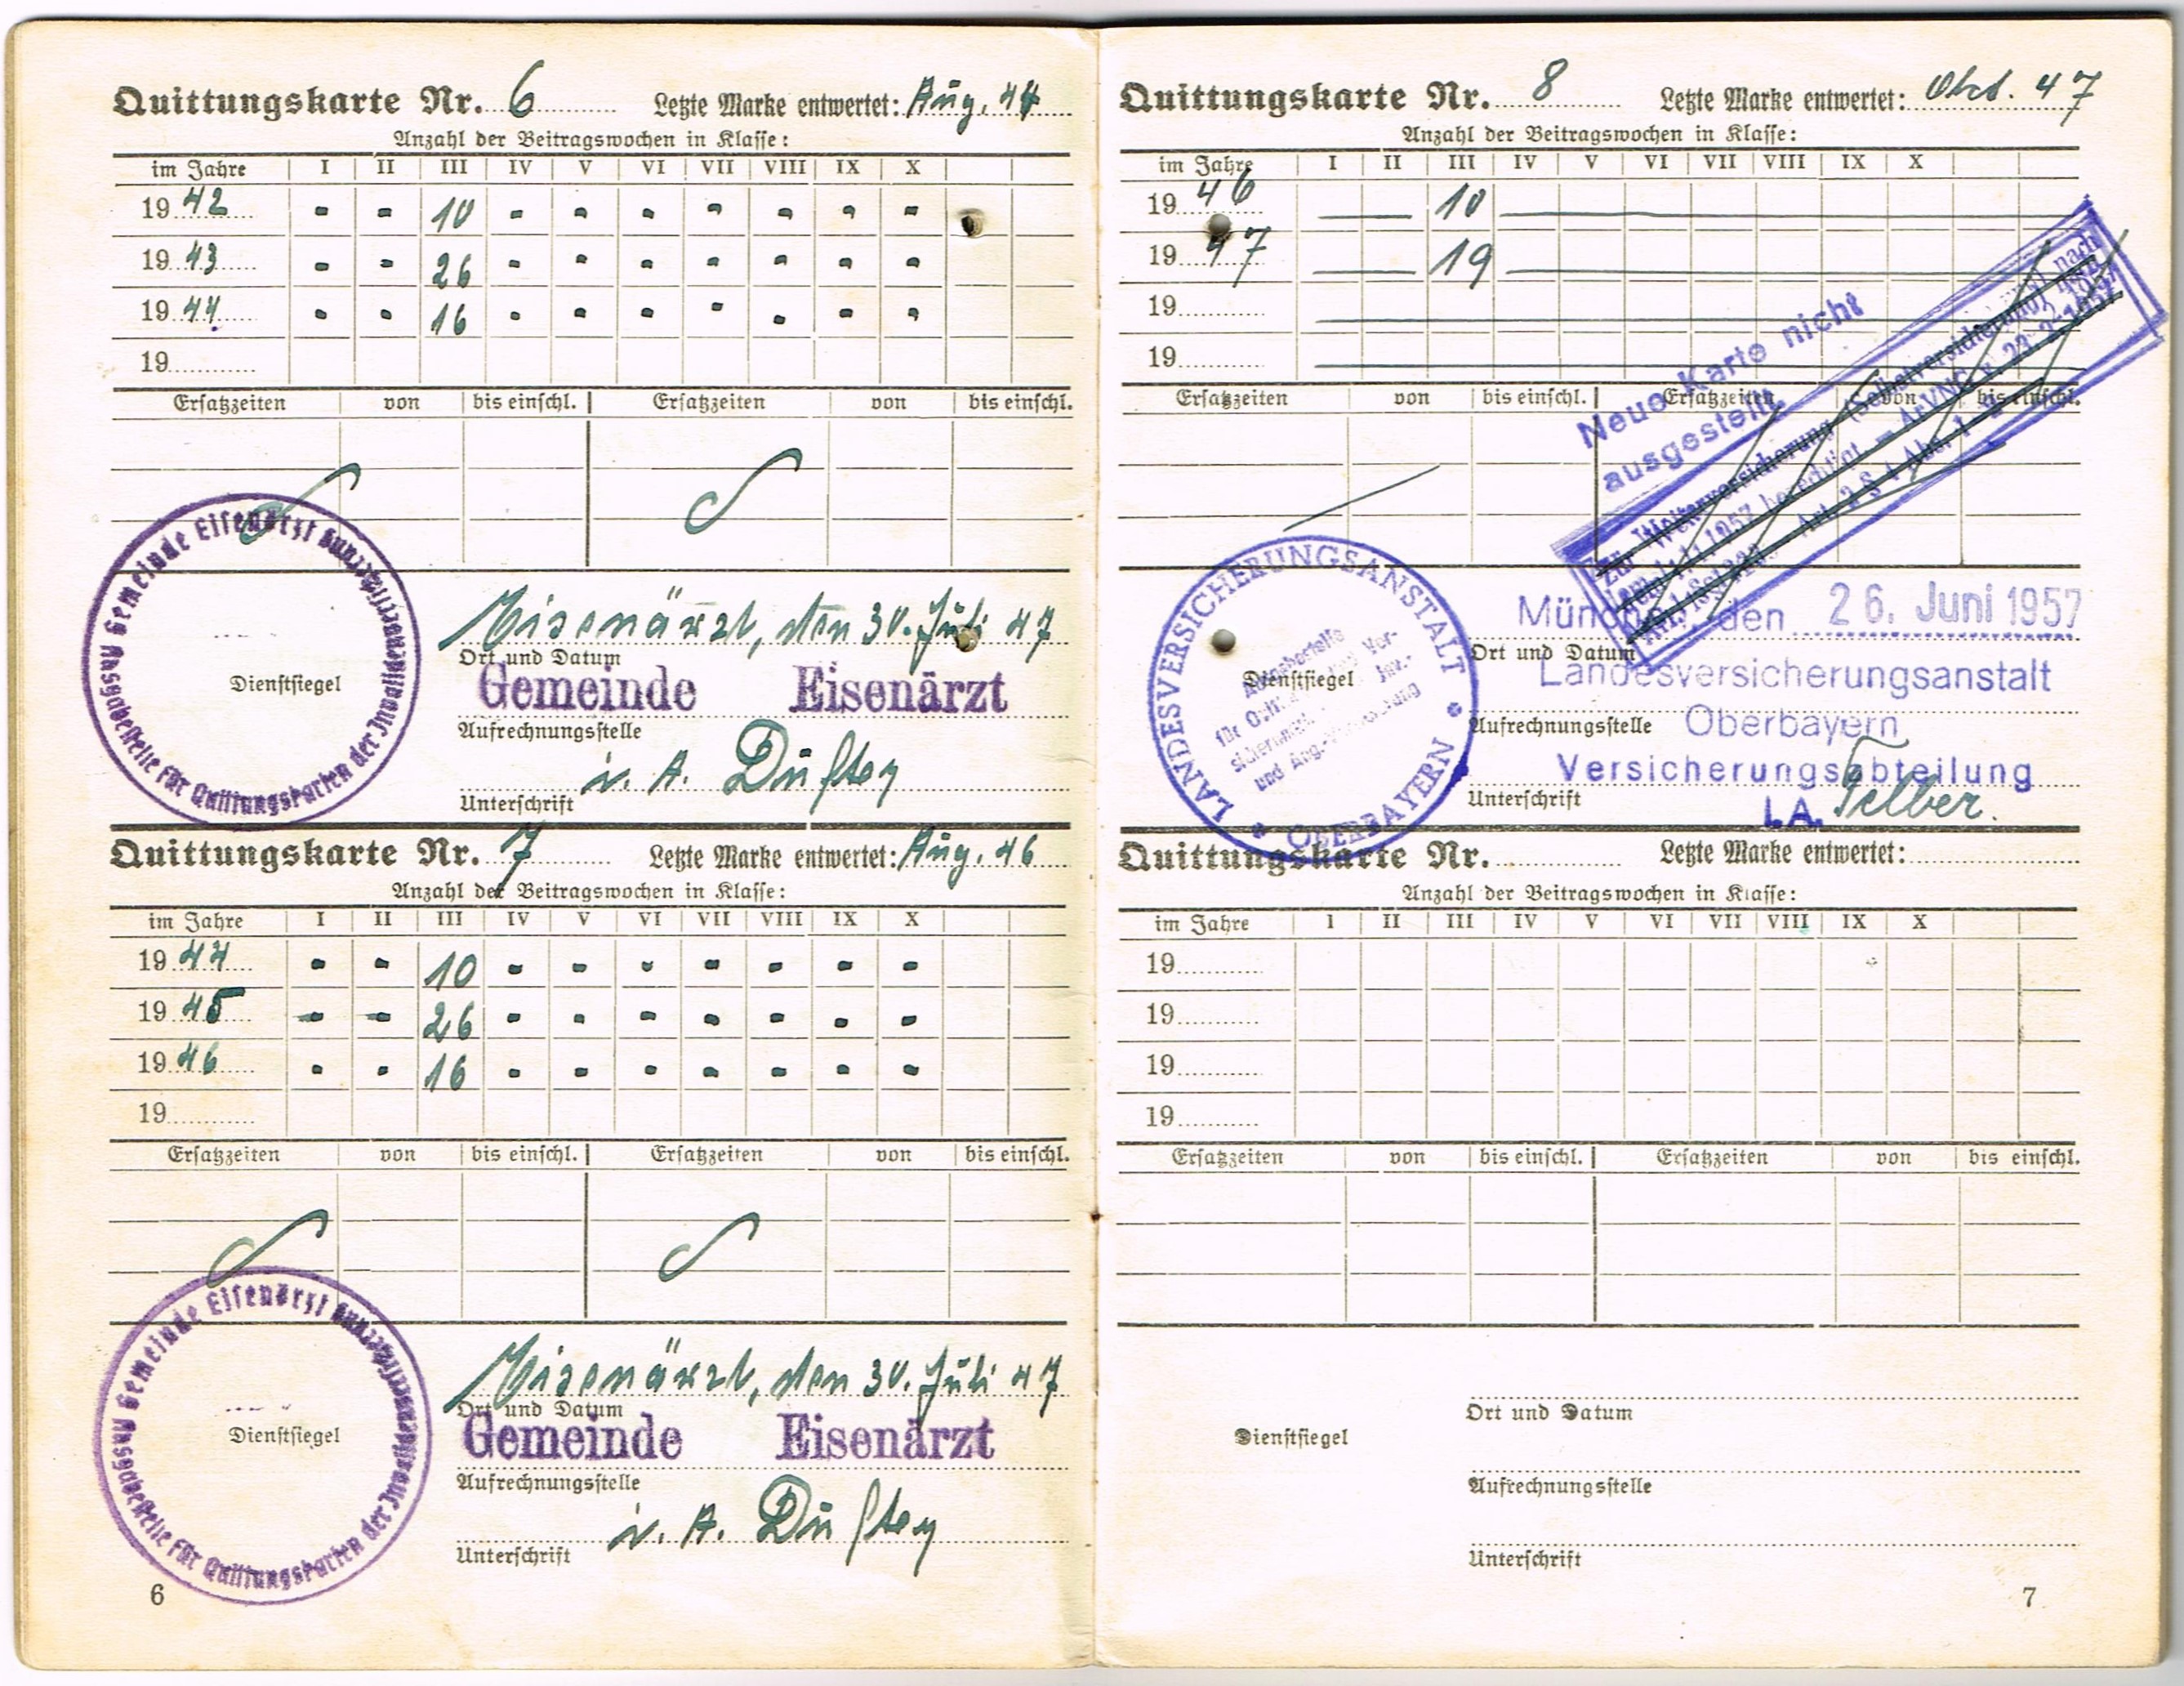 Quittungskarte Nr. 6 Letzte Marke entwertet: Aug. 44
Anzahl der Beitragswochen in Klasse:
im Jahre I II III IV V VI VII VIII IX X
19 42 - - 10 - - - - - - -
19 43 - - 26 - - - - - - -
19 44 - - 16 - - - - - - -
19
Ersatzzeiten von bis einschl. Ersatzzeiten von bis einschl.
Ausgabestelle für Quittungskarten der Invalidenversicherung Gemeinde Eisenärzt
Dienstsiegel
Eisenärzt, den 30. Juli 47
Ort und Datum
Gemeinde Eisenärzt
Aufrechnungsstelle
i. A.
Unterschrift
Quittungskarte Nr. 7 Letzte Marke entwertet: Aug. 46
Anzahl der Beitragswochen in Klasse:
im Jahre I II III IV V VI VII VIII IX X
19 44 - - 10 - - - - - - -
19 45 - - 26 - - - - - - -
19 46 - - 16 - - - - - - -
19
Ersatzzeiten von bis einschl. Ersatzzeiten von bis einschl.
Ausgabestelle für Quittungskarten der Invalidenversicherung Gemeinde Eisenärzt
Dienstsiegel
Eisenärzt, den 30. Juli 47
Ort und Datum
Gemeinde Eisenärzt
Aufrechnungsstelle
i. A.
Unterschrift
6
Quittungskarte Nr. 8 Letzte Marke entwertet: Okt. 47
Anzahl der Beitragswochen in Klasse:
im Jahre I II III IV V VI VII VIII IX X
19 46 10
19 47 19
19
19
Neue Karte nicht
ausgestellt
Zur Weiterversicherung (Selbstversicherung) nach
dem 1. 1. 1957 berechtigt
Ersatzzeiten von bis einschl. Ersatzzeiten von bis einschl.
LANDESVERSICHERUNGSANSTALT OBERBAYERN
Dienstsiegel
München, den 26. Juni 1957
Ort und Datum
Landesversicherungsanstalt
Aufrechnungsstelle Oberbayern
Versicherungsabteilung
Unterschrift I.A. Felber.
Quittungskarte Nr. Letzte Marke entwertet:
Anzahl der Beitragswochen in Klasse:
im Jahre I II III IV V VI VII VIII IX X
19
19
19
19
Ersatzzeiten von bis einschl. Ersatzzeiten von bis einschl.
Ort und Datum
Dienstsiegel
Aufrechnungsstelle
Unterschrift
7